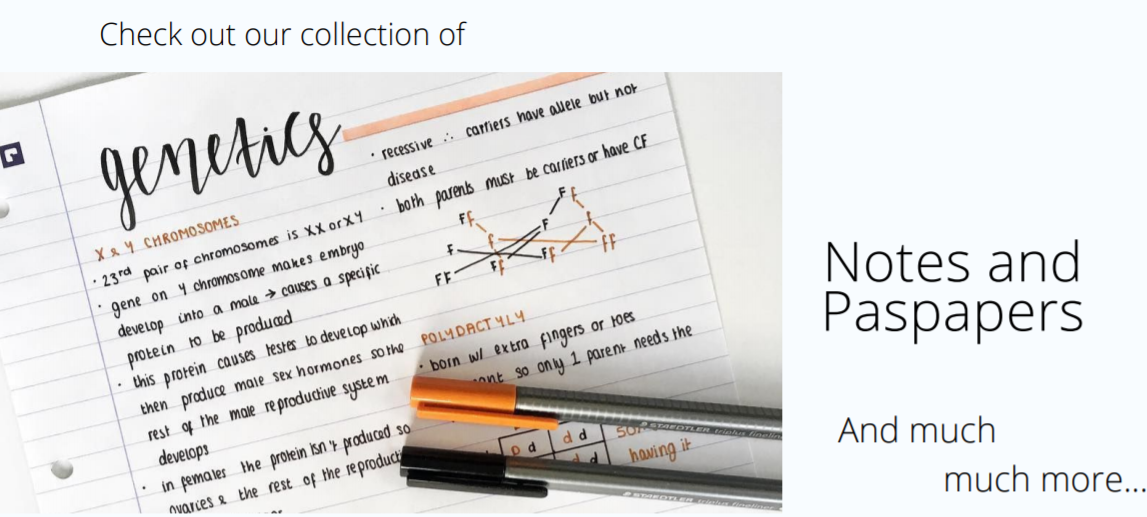 Check out our collection of
genetics
X & Y CHROMOSOMES
· 23rd pair of chromosomes is XX or XY
· gene on Y chromosome makes embryo
develop into a male → causes a specific
protein to be produced
· this protein causes testes to develop which
then produce male sex hormones so the
rest of the male reproductive system
develops
· in females the protein isn't produced so
ovaries & the rest of the reproducti
· recessive ∴ carriers have allele but not
disease
· both parents must be carriers or have CF
F f
F f
F
f
f
F
F F
F f
F f
f f
POLYDACTYLY
· born w/ extra fingers or toes
so only 1 parent needs the
D d
d d
having it
STAEDTLER
STAEDTLER
Notes and
Paspapers
And much
much more...